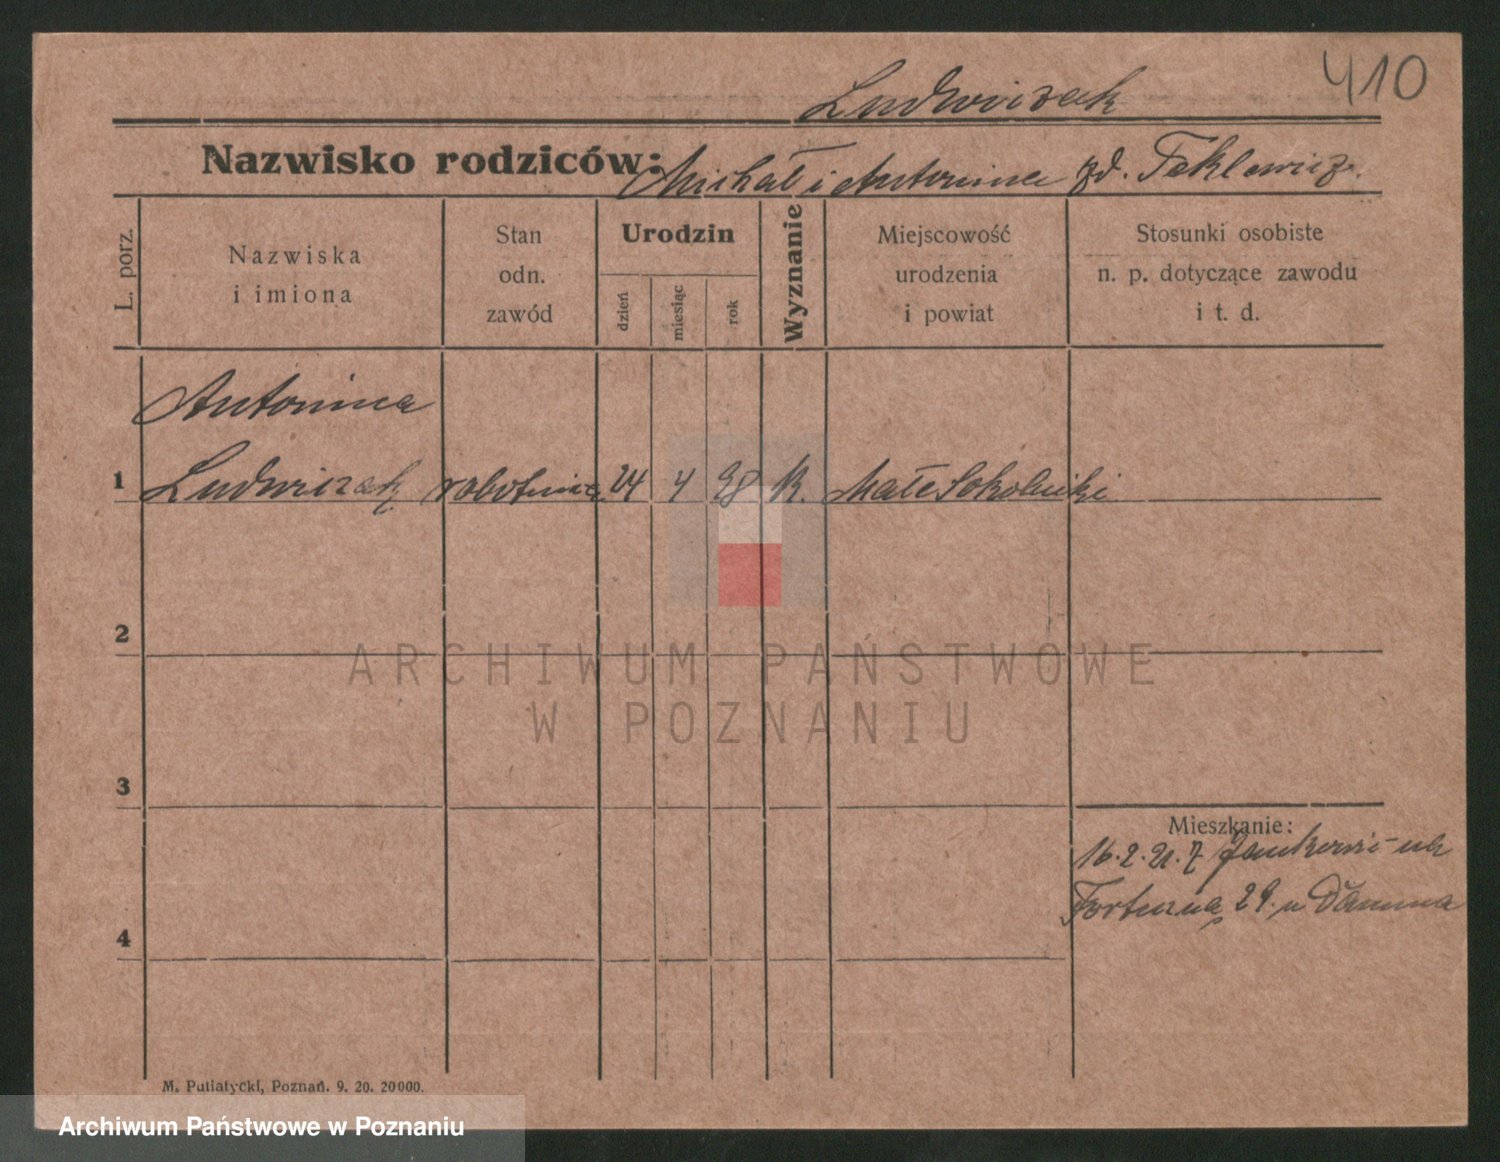 410
Ludwiczak
Nazwisko rodziców: Michał i Antonina zd. Teklewicz
L. porz.
Nazwiska
i imiona
Stan
odn.
zawód
Urodzin
dzień
miesiąc
rok
Wyznanie
Miejscowość
urodzenia
i powiat
Stosunki osobiste
n. p. dotyczące zawodu
i t. d.
Antonina
1 Ludwiczak robotnica 24 4 98 k. Małe Sokolniki
2
ARCHIWUM PAŃSTWOWE
W POZNANIU
3
Mieszkanie:
16.2.21. z
4
29. u
M. Putiatycki, Poznań. 9. 20. 20 000.
Archiwum Państwowe w Poznaniu